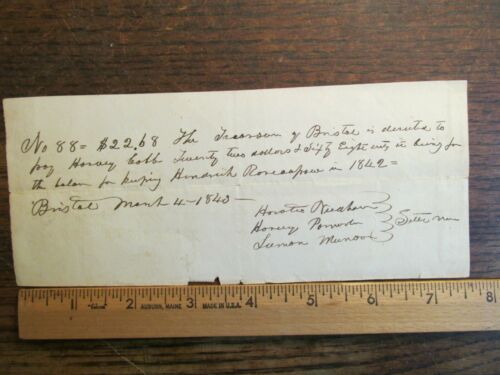 No 88 = $22.68 The Treasurer of Bristol is directed to
pay Harvey Cobb Twenty two dollars & Sixty Eight cts it being for
the balan for keeping Hendrick in 1842 =
Bristol March 4 - 1843 -
Horatio Needham
Harvey
Luman Munson
Select men
1 2 3 4 5 6 7 8
AUBURN, MAINE MADE IN U.S.A.